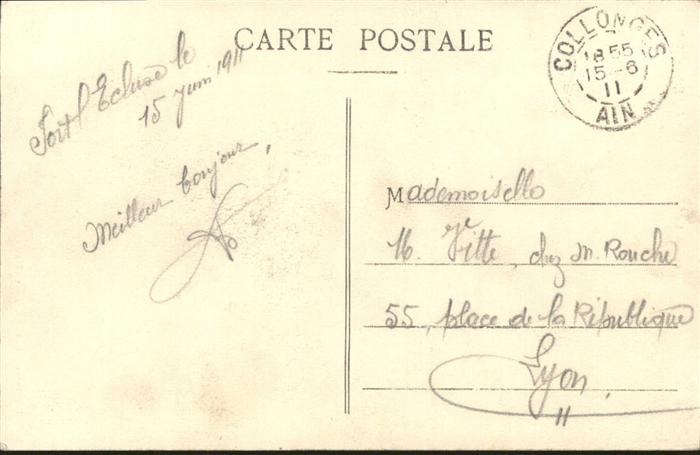 CARTE POSTALE
COLLONGES
18 55
15-6
11
AIN
Fort l'Ecluse le
15 juin 1911
Meilleur bonjour,
Mademoiselle
M. Vitte, chez M. Rouche
55, place de la République
Lyon